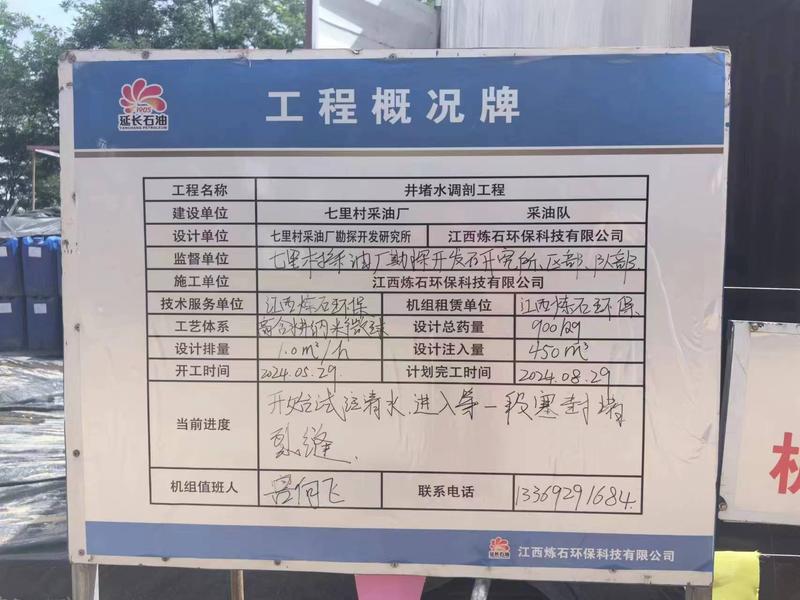 1905
延长石油
YANCHANG PETROLEUM
工程概况牌
工程名称 井堵水调剖工程
建设单位 七里村采油厂 采油队
设计单位 七里村采油厂勘探开发研究所 江西炼石环保科技有限公司
监督单位 七里村采油厂勘探开发研究所、区部、队部
施工单位 江西炼石环保科技有限公司
技术服务单位 江西炼石环保 机组租赁单位 江西炼石环保
工艺体系 纳米微球 设计总药量
设计排量 1.0m³/h 设计注入量 450m³
开工时间 2024.05.29 计划完工时间 2024.08.29
当前进度 开始试注清水.进入第一段塞封堵
裂缝.
机组值班人 何飞 联系电话 13369291684
延长石油
江西炼石环保科技有限公司
机